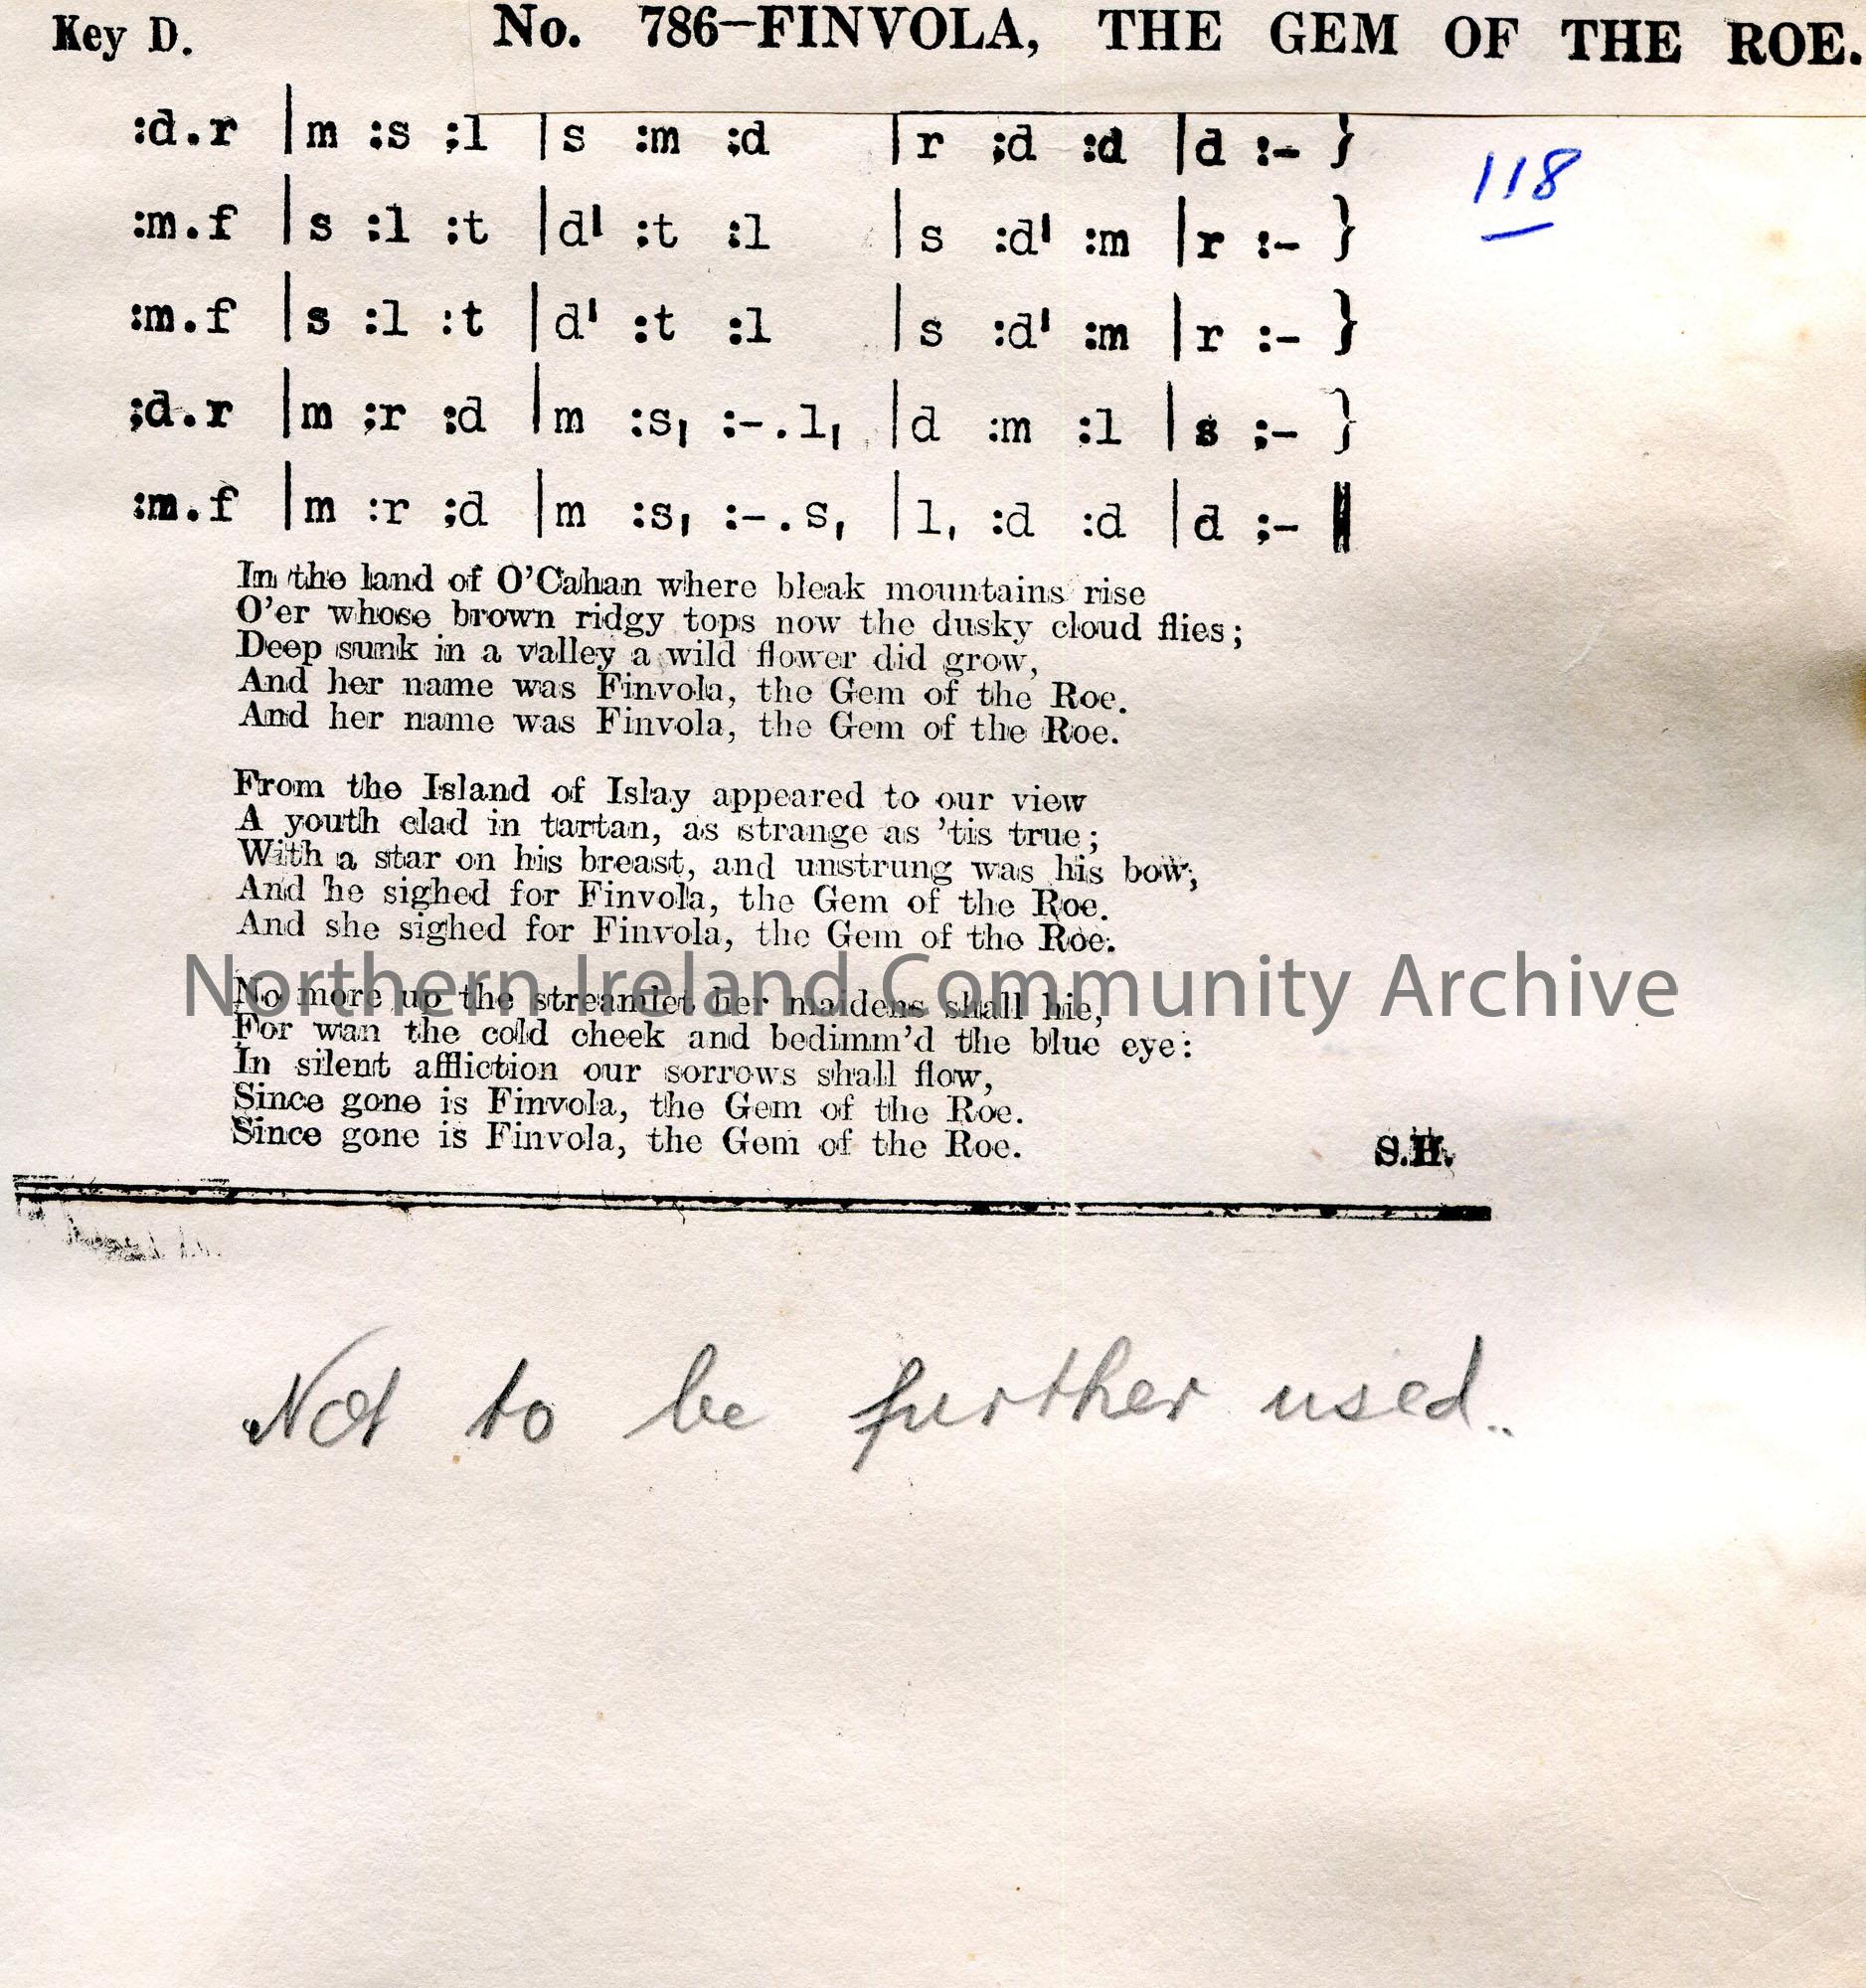 Key D. No. 786—FINVOLA, THE GEM OF THE ROE.
:d.r |m :s ;l |s :m ;d |r ;d :d |d :- }
118
:m.f |s :l :t |d' :t :l |s :d' :m |r :- }
:m.f |s :l :t |d' :t :l |s :d' :m |r :- }
;d.r |m ;r :d |m :s, :-.l, |d :m :l |s ;- }
:m.f |m :r ;d |m :s, :-.s, |l, :d :d |d ;- ‖
In the land of O'Cahan where bleak mountains rise
O'er whose brown ridgy tops now the dusky cloud flies;
Deep sunk in a valley a wild flower did grow,
And her name was Finvola, the Gem of the Roe.
And her name was Finvola, the Gem of the Roe.
From the Island of Islay appeared to our view
A youth clad in tartan, as strange as 'tis true;
With a star on his breast, and unstrung was his bow;
And he sighed for Finvola, the Gem of the Roe.
And she sighed for Finvola, the Gem of the Roe.
Northern Ireland Community Archive
No more up the streamlet her maidens shall hie,
For wan the cold cheek and bedimm'd the blue eye:
In silent affliction our sorrows shall flow,
Since gone is Finvola, the Gem of the Roe.
Since gone is Finvola, the Gem of the Roe.
S.H.
Not to be further used..